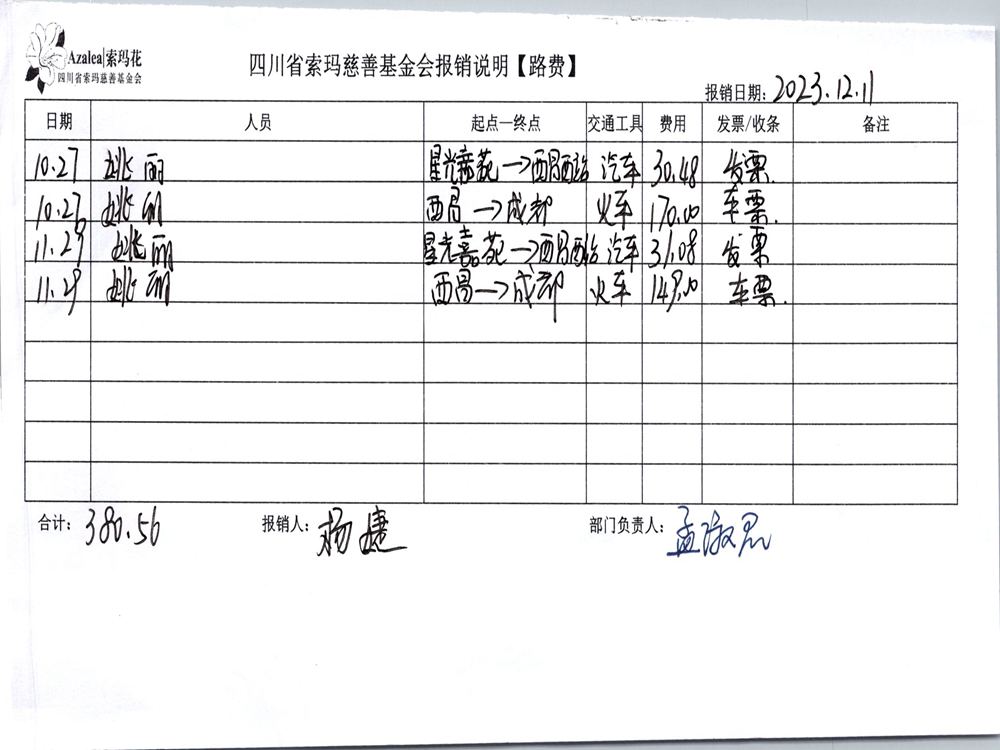 Azalea|索玛花
四川省索玛慈善基金会
四川省索玛慈善基金会报销说明【路费】
报销日期：2023.12.11
日期 人员 起点—终点 交通工具 费用 发票/收条 备注
10.27 姚丽 星光嘉苑→西昌西站 汽车 30.48 发票.
10.27 姚丽 西昌→成都 火车 170.00 车票.
11.29 姚丽 星光嘉苑→西昌西站 汽车 31.08 发票
11.29 姚丽 西昌→成都 火车 149.00 车票.
合计：380.56 报销人：杨婕 部门负责人：孟淑君